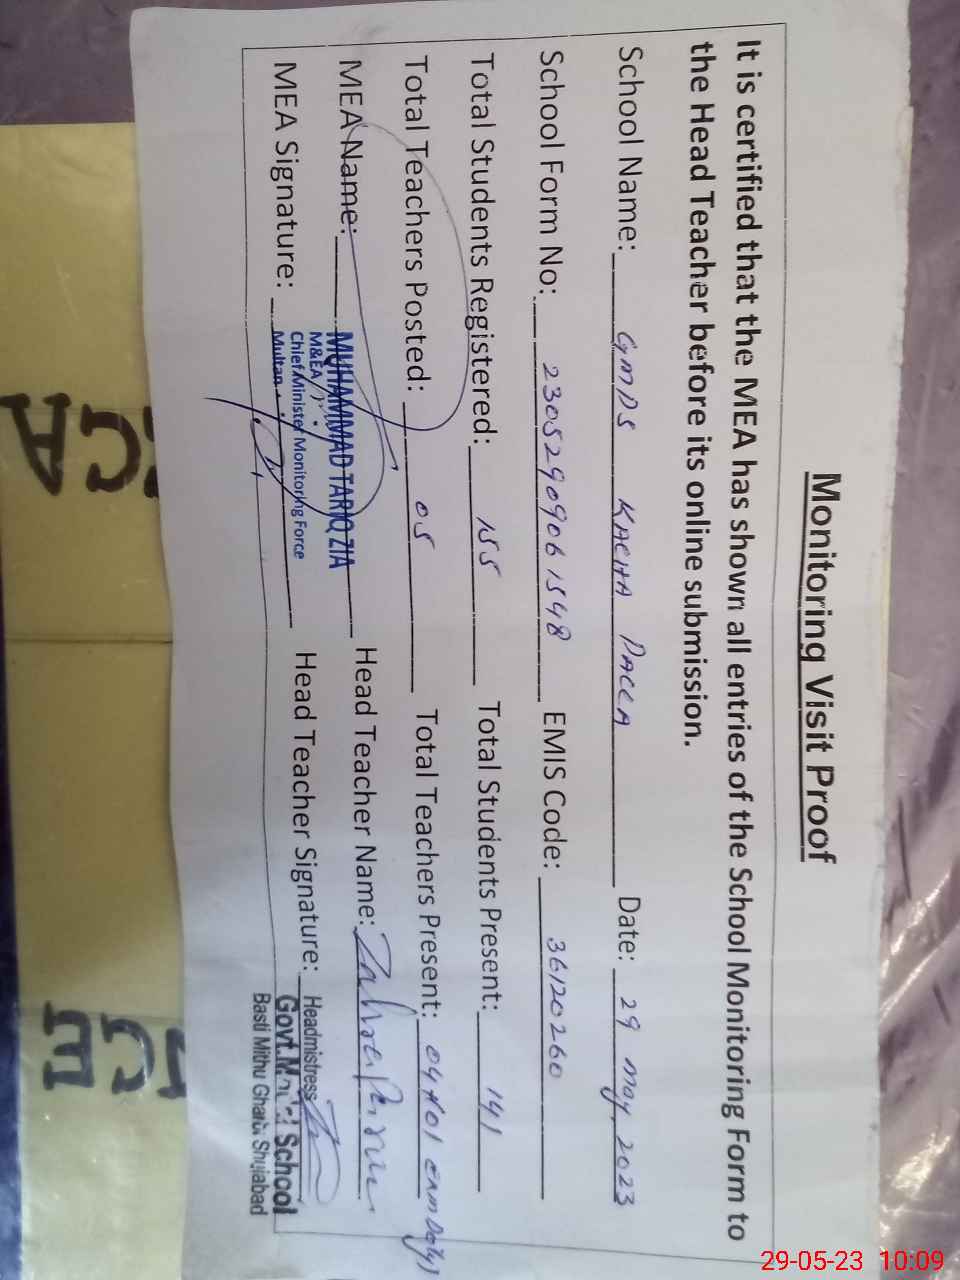 Monitoring Visit Proof
It is certified that the MEA has shown all entries of the School Monitoring Form to
the Head Teacher before its online submission.
School Name: GMPS KACHA PACCA Date: 29 May, 2023
School Form No: 23052909061548 EMIS Code: 36120260
Total Students Registered: 155 Total Students Present: 141
Total Teachers Posted: 05 Total Teachers Present: 04+01 Exam Duty)
MEA Name: MUHAMMAD TARIQ ZIA Head Teacher Name:
M&EA
Chief Minister Monitoring Force
Multan.
MEA Signature: Head Teacher Signature:
Headmistress
Govt. Model School
Basti Mithu Gharbi Shujabad
CA
CE
29-05-23 10:09